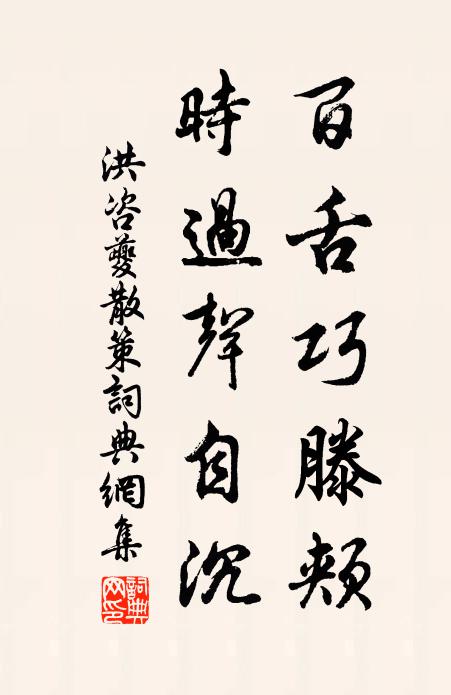 百舌巧滕頰
時過聲自沉
洪咨夔散策詞典網集
詞典网印